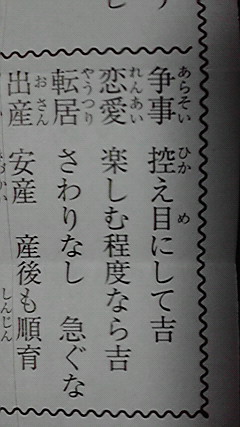 争事 控え目にして吉
恋愛 楽しむ程度なら吉
転居 さわりなし 急ぐな
出産 安産 産後も順育